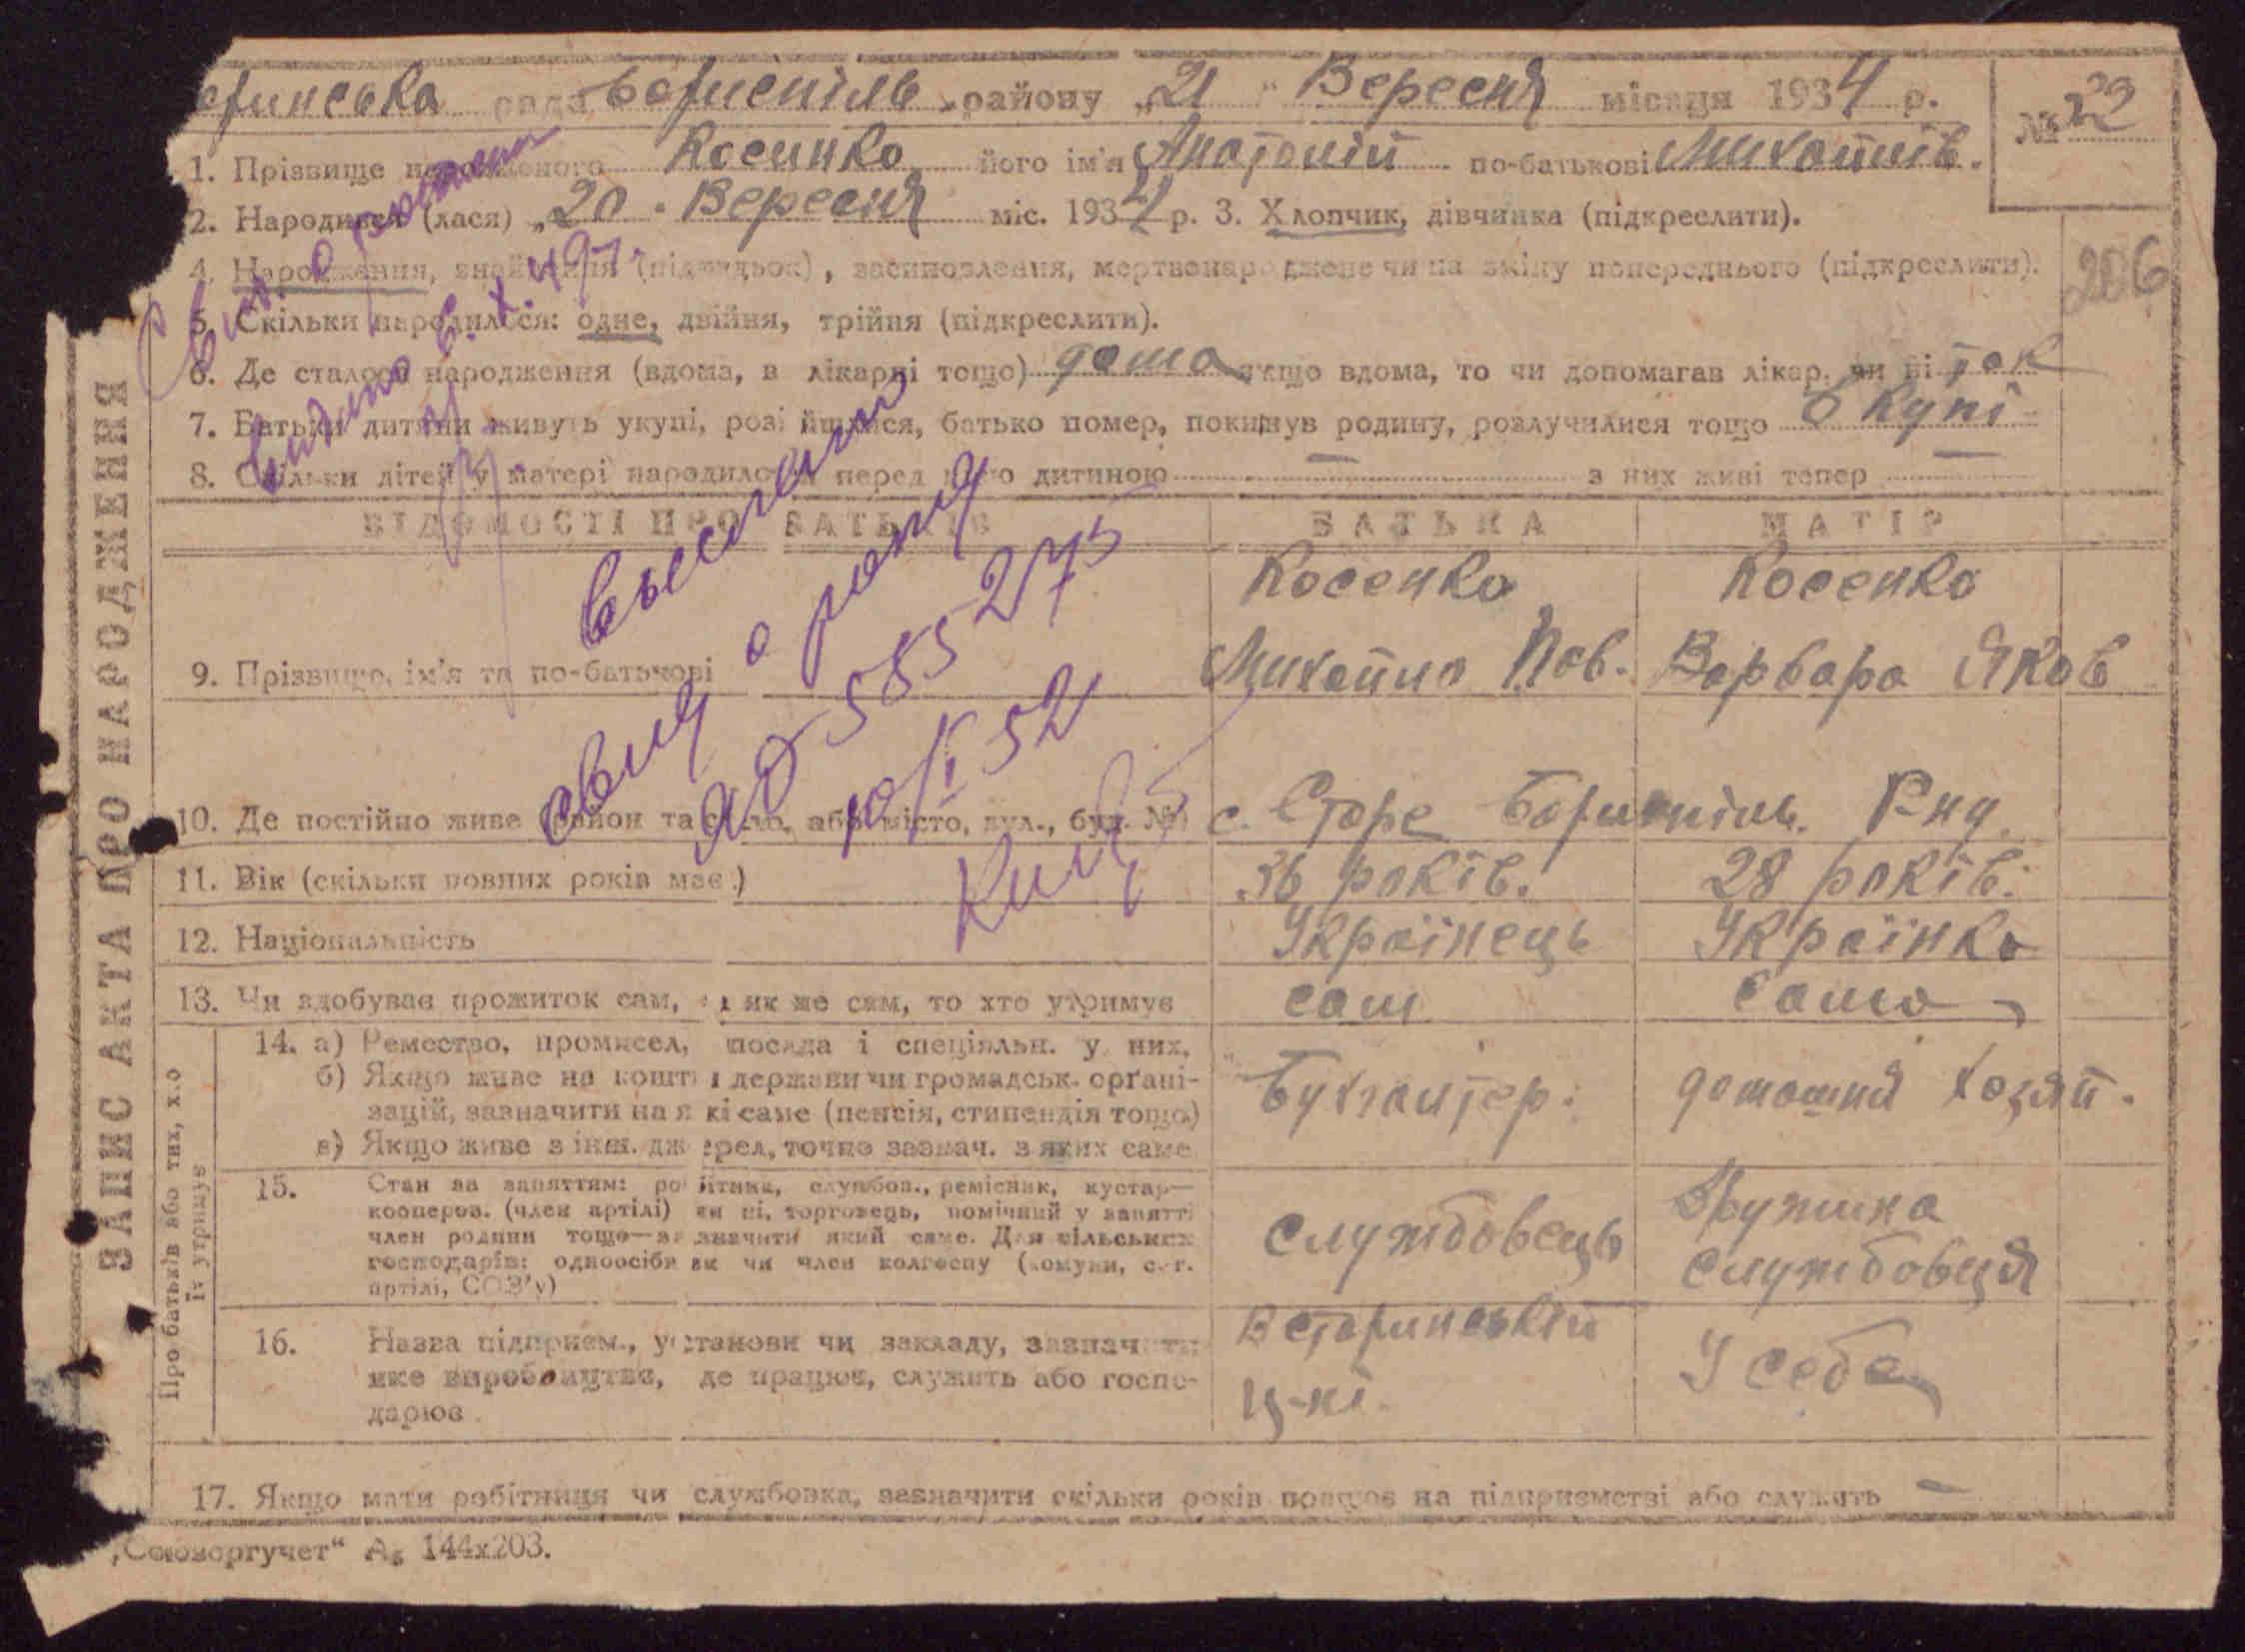 аринська рада Бориспіль району „21" Вересня місяця 1934 р.
№ 22
1. Прізвище народженого Косинко його ім'я Анатолій по-батькові Михайлів.
2. Народився (лася) „20. Вересня міс. 1934 р. 3. Хлопчик, дівчинка (підкреслити).
4. Народження, знайдення (підкидьок), засиновлення, мертвонароджене чи на зміну попереднього (підкреслити).
206
5. Скільки народилося: одне, двійня, трійня (підкреслити).
6. Де сталося народження (вдома, в лікарні тощо) дома якщо вдома, то чи допомагав лікар, чи ні так
7. Батьки дитини живуть укупі, розійшлися, батько помер, покинув родину, розлучилися тощо Вкупі
8. Скільки дітей у матері народилося перед цією дитиною — з них живі тепер —
ВІДОМОСТІ ПРО БАТЬКІВ БАТЬКА МАТІР
Косенко Косенко
9. Прізвище, ім'я та по-батькові Михайло Пав. Варвара Яков
10. Де постійно живе (район та село, або місто, вул., буд. №) с. Старе Бориспіль. Рну.
11. Вік (скільки повних років має) 36 років. 28 років.
12. Національність Українець Українка
13. Чи здобуває прожиток сам, а як не сам, то хто утримує сам сама
14. а) Ремество, промисел, посада і спеціяльн. у них.
б) Якщо живе на кошти держави чи громадськ. орґані-
зацій, зазначити на які саме (пенсія, стипендія тощо)
в) Якщо живе з інш. джерел, точно зазнач. з яких саме
Бухгалтер. домашня хозяй.
15. Стан за заняттям: робітник, службов., ремісник, кустар—
кооперов. (член артілі) чи ні, торговець, помічний у занятті
член родини тощо—зазначити який саме. Для сільських
господарів: одноосібник чи член колгоспу (комуни, с.-г.
артілі, СОЗ'у)
службовець Дружина
службовця
16. Назва підприєм., установи чи закладу, зазначити
яке виробництво, де працює, служить або госпо-
дарює
В Старинській
ц-кі. У себе
17. Якщо мати робітниця чи службовка, зазначити скільки років працює на підприємстві або служить —
„Союзоргучет" А₅ 144х203.
ЗАПИС АКТА ПРО НАРОДЖЕННЯ
Про батьків або тих, хто
їх утримує
Выдано 6. X. 49 г.
свид о рожд
ЯЮ 585275
10/V 52